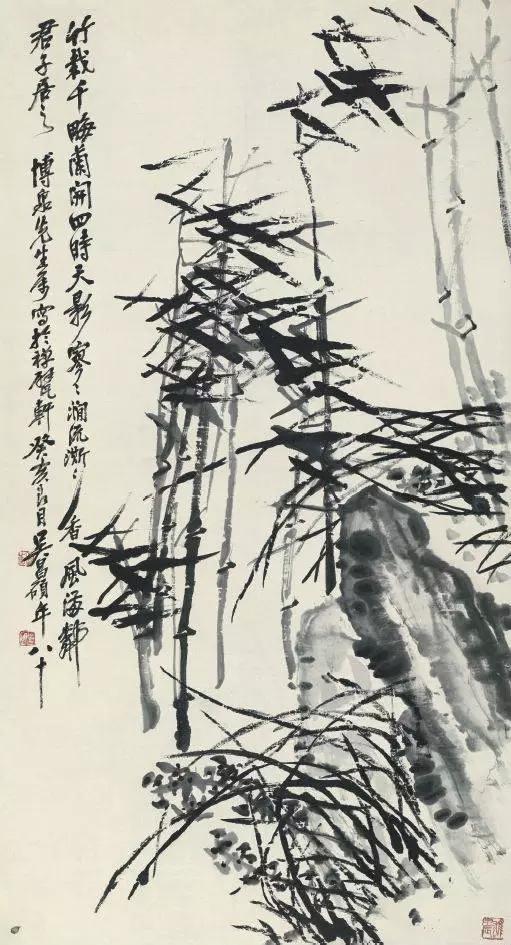 竹栽千畮蘭開四時天影寥〻澗流澌〻香風
君子居之 博泉先生屬寫於禪甓軒癸亥良月吳昌碩年八十